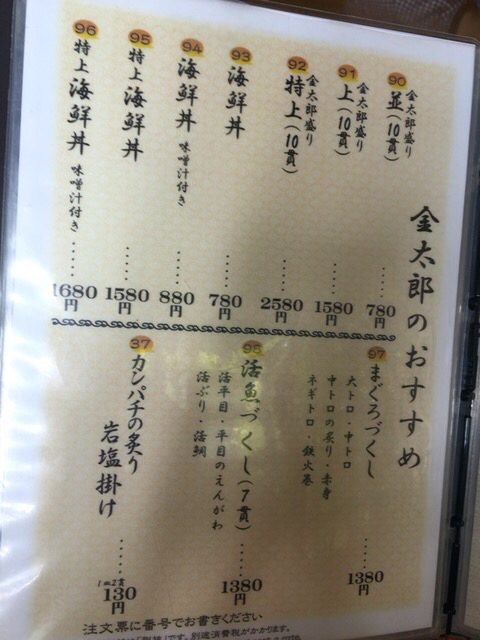 金太郎のおすすめ
90
金太郎盛り
並(10貫)
780円
91
金太郎盛り
上(10貫)
1580円
92
金太郎盛り
特上(10貫)
2580円
93
海鮮丼
780円
94
海鮮丼 味噌汁付き
880円
95
特上海鮮丼
1580円
96
特上海鮮丼 味噌汁付き
1680円
97
まぐろづくし
大トロ・中トロ
中トロの炙り・赤身
ネギトロ・鉄火巻
1380円
98
活魚づくし(7貫)
活平目・平目のえんがわ
活ぶり・活鯛
1380円
37
カンパチの炙り
岩塩掛け
1皿2貫
130円
注文票に番号でお書きください
です。別途消費税がかかります。